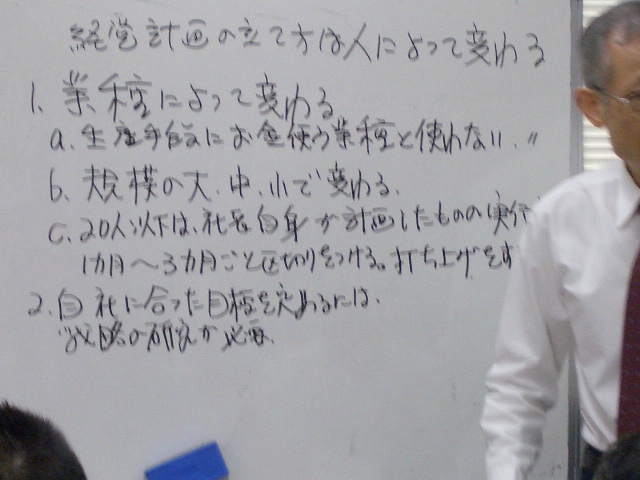 経営計画の立て方は人によって変わる
1. 業種によって変わる
a. 生産手段にお金使う業種と使わない 〃
b. 規模の大、中、小で変わる.
c. 20人以下は、社長自身が計画したものの実行
1カ月〜3カ月ごと区切りをつける。打ち上げをす
2. 自社に合った目標を定めるには、
戦略の研究が必要.